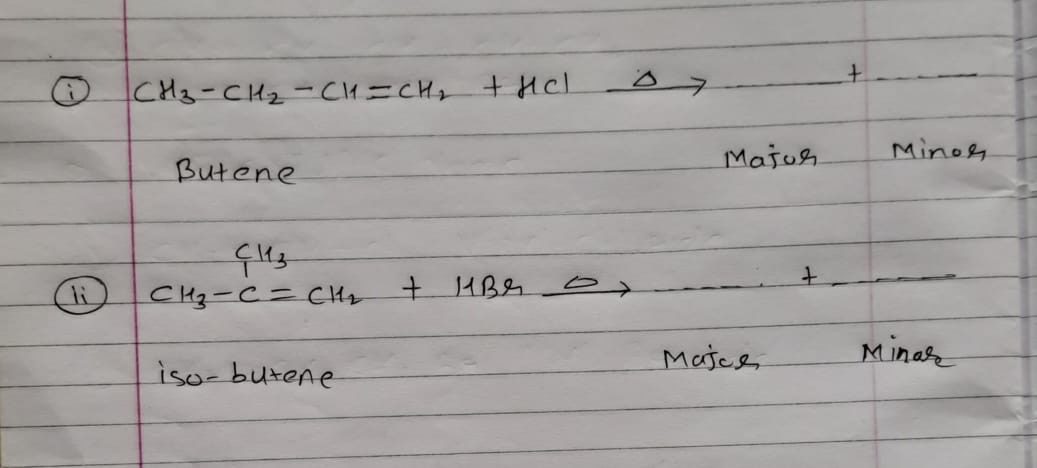 (i) CH3-CH2-CH=CH2 + HCl Δ→ ______ + ______
Butene Major Minor
CH3
(ii) CH3-C=CH2 + HBr Δ→ ______ + ______
iso-butene Major Minor